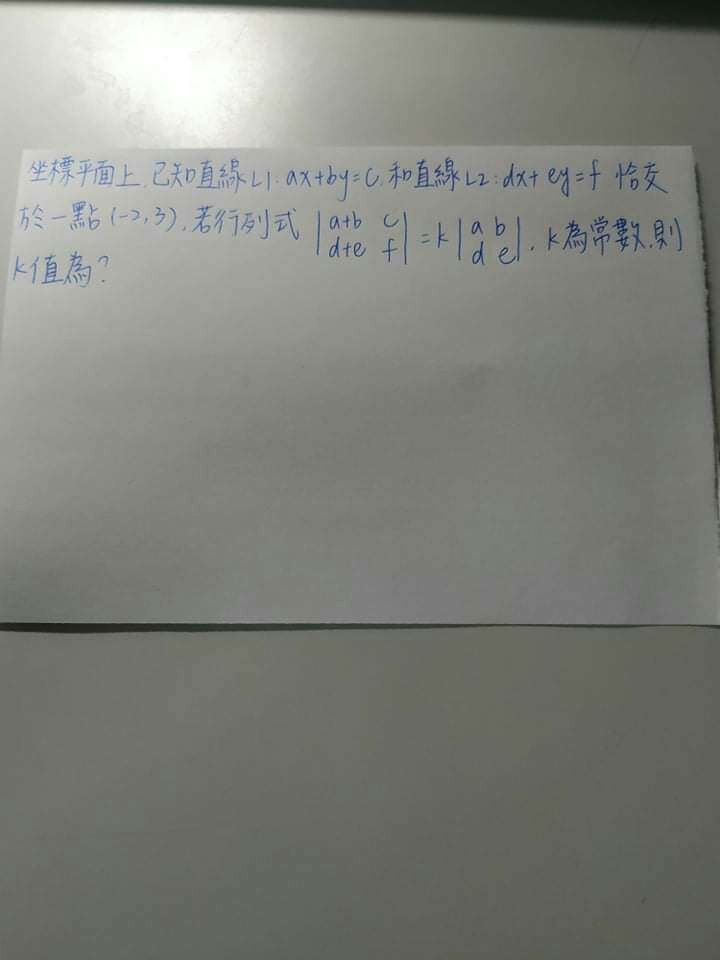 坐標平面上，已知直線L1：ax+by=c，和直線L2：dx+ey=f 恰交
於一點(-2,3)，若行列式 |a+b c; d+e f| = k|a b; d e|，k為常數，則
k值為？